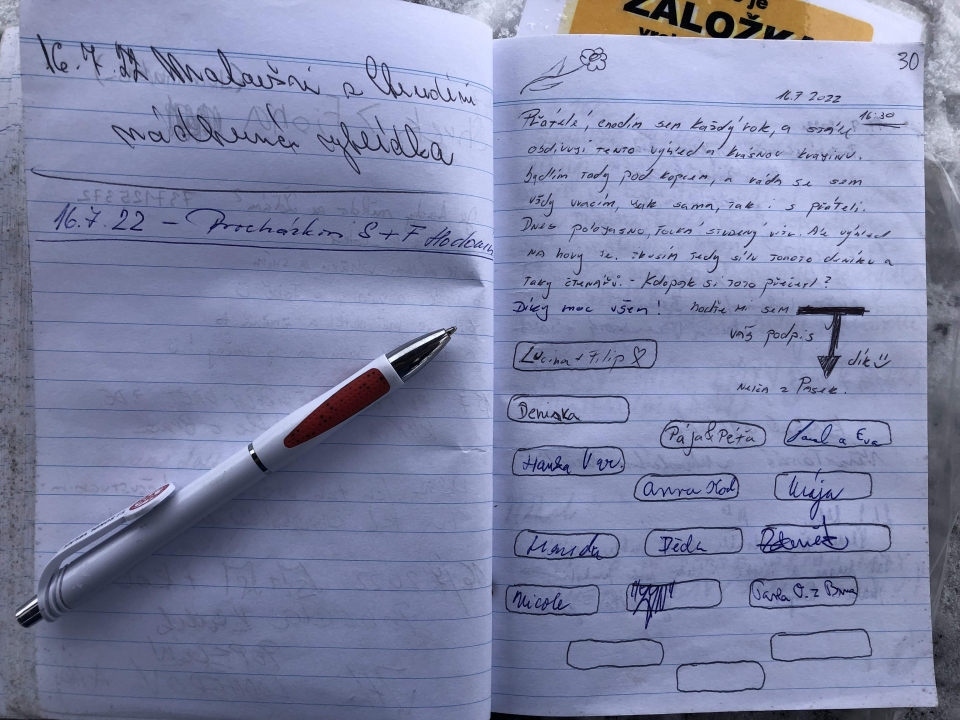 je
ZÁLOŽKA
16.7.22
nádherná vyhlídka
16.7.22 – Procházkovi S+F
30
16.7.2022
16:30
Přátelé, chodím sem každý rok, a stále
obdivuji tento výhled a krásnou krajinu.
bydlím tady pod kopcem, a ráda se sem
vždy vracím, jak sama, tak i s přáteli.
Dnes polojasno, fouká studený vítr. Ale výhled
na hory je. zkusím tedy sílu tohoto deníku a
taky čtenářů. - Kdopak si toto přečetl?
Díky moc všem! hoďte mi sem
váš podpis
dík
z Pasek.
Lucina + Filip
Deniska
Pája & Péťa
a Eva
Hanka Var.
Anna Hod
Mája
Děda
Nicole
z Brna